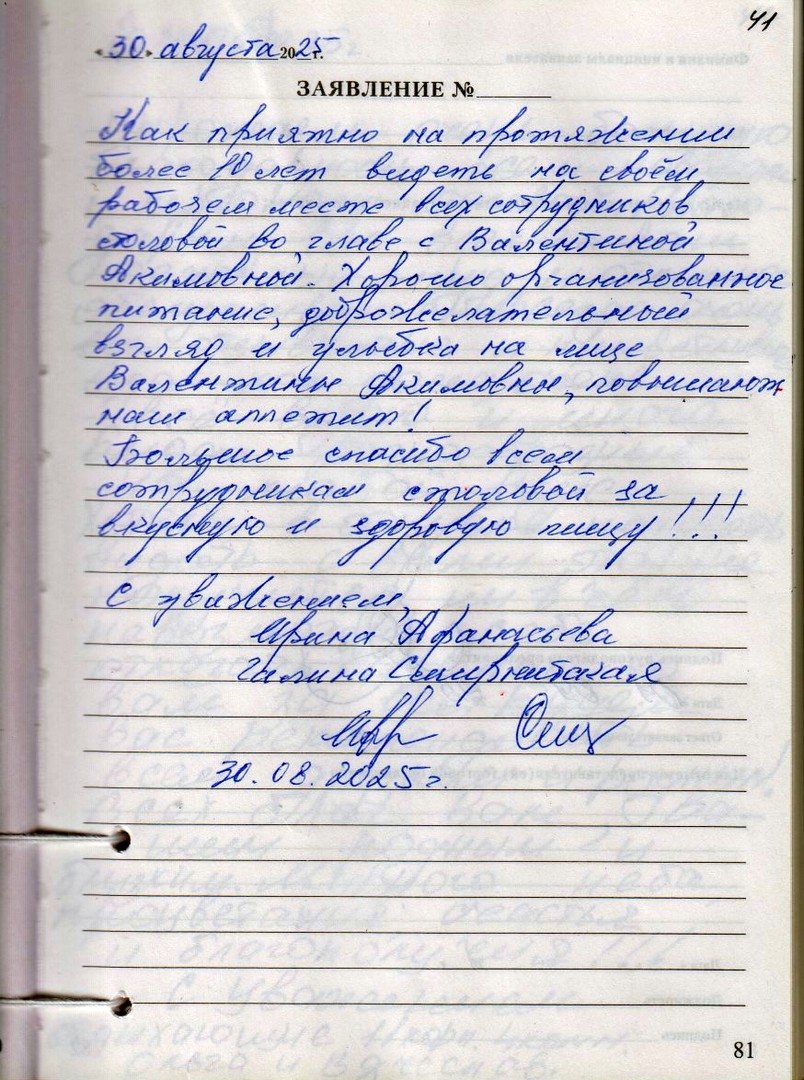 41
«30» августа 2025 г.
ЗАЯВЛЕНИЕ №
Как приятно на протяжении
более 10 лет видеть на своём
рабочем месте всех сотрудников
столовой во главе с Валентиной
Акимовной. Хорошо организованное
питание, доброжелательный
взгляд и улыбка на лице
Валентины Акимовны, повышают
наш аппетит!
Большое спасибо всем
сотрудникам столовой за
вкусную и здоровую пищу!!!
С уважением,
Ирина Афанасьева
Галина
30.08.2025г.
81